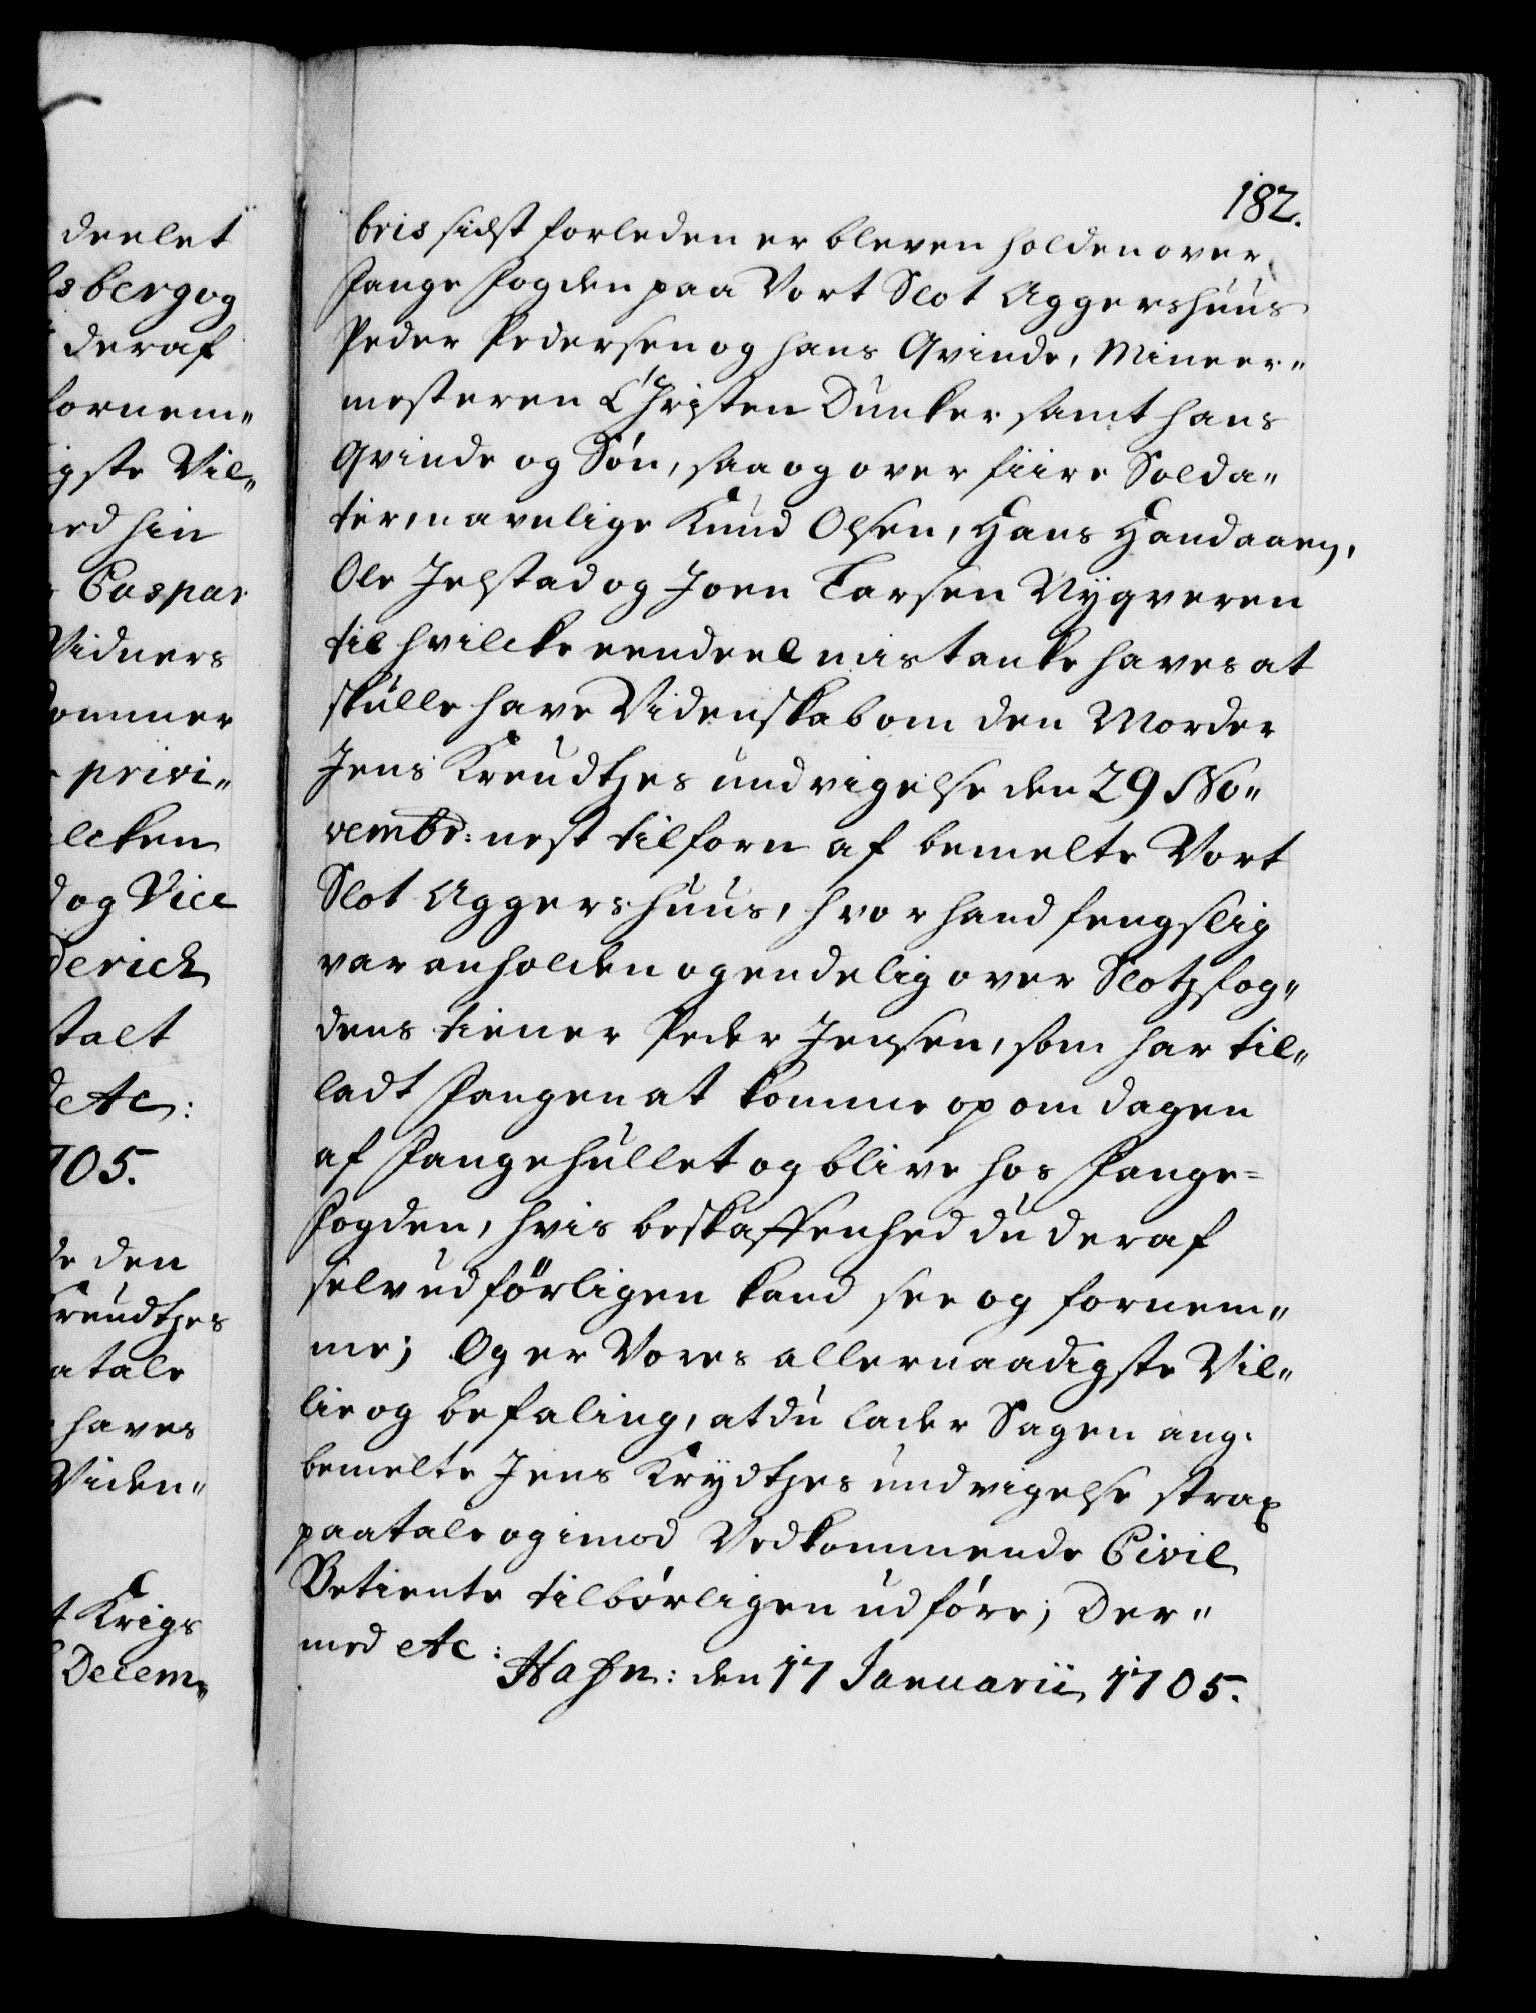 deelet
sberg og
deraf
fornem„
igste Vil„
ed hin
Caspar
Vidners
ommer
privi„
elcken
d og Vice
derich
stalt
d etc:
705.
de den
Kreudtzes
atale
haves
Viden„
t Krigs
Decem„
182.
bris sidst forleden er bleven holden over
Fange Fogden paa Vort Slot Aggershuus
Peder Pedersen og hans Qvinde, Mineer„
mesteren Christen Duncker samt hans
Qvinde og Søn, saa og over fiire Solda„
ter, navnlige Knud Olsen, Hans Handaaen,
Ole Jelstad og Joen Larsen Nyqveren
til hvilcke eendeel mistanke haves at
skulle have Videnskab om den Morder
Jens Kreudtzes undvigelse den 29 No„
vembr: nest tilforn af bemelte Vort
Slot Aggershuus, hvor hand fengslig
var anholden og endelig over Slotzfog„
dens tiener Peder Jensen, som har til„
ladt Fangen at komme op om dagen
af Fangehullet og blive hos Fange=
Fogden, hvis beskaffenhed du deraf
selv udførligen kand see og fornem„
me; Og er Vores allernaadigste Vil„
lie og befaling, at du lader Sagen ang.
bemelte Jens Krydtzes undvigelse strax
paatale og imod Vedkommende Civil
Betiente tilbørligen udføre; Der„
med etc:
Hafn: den 17 Januarii 1705.